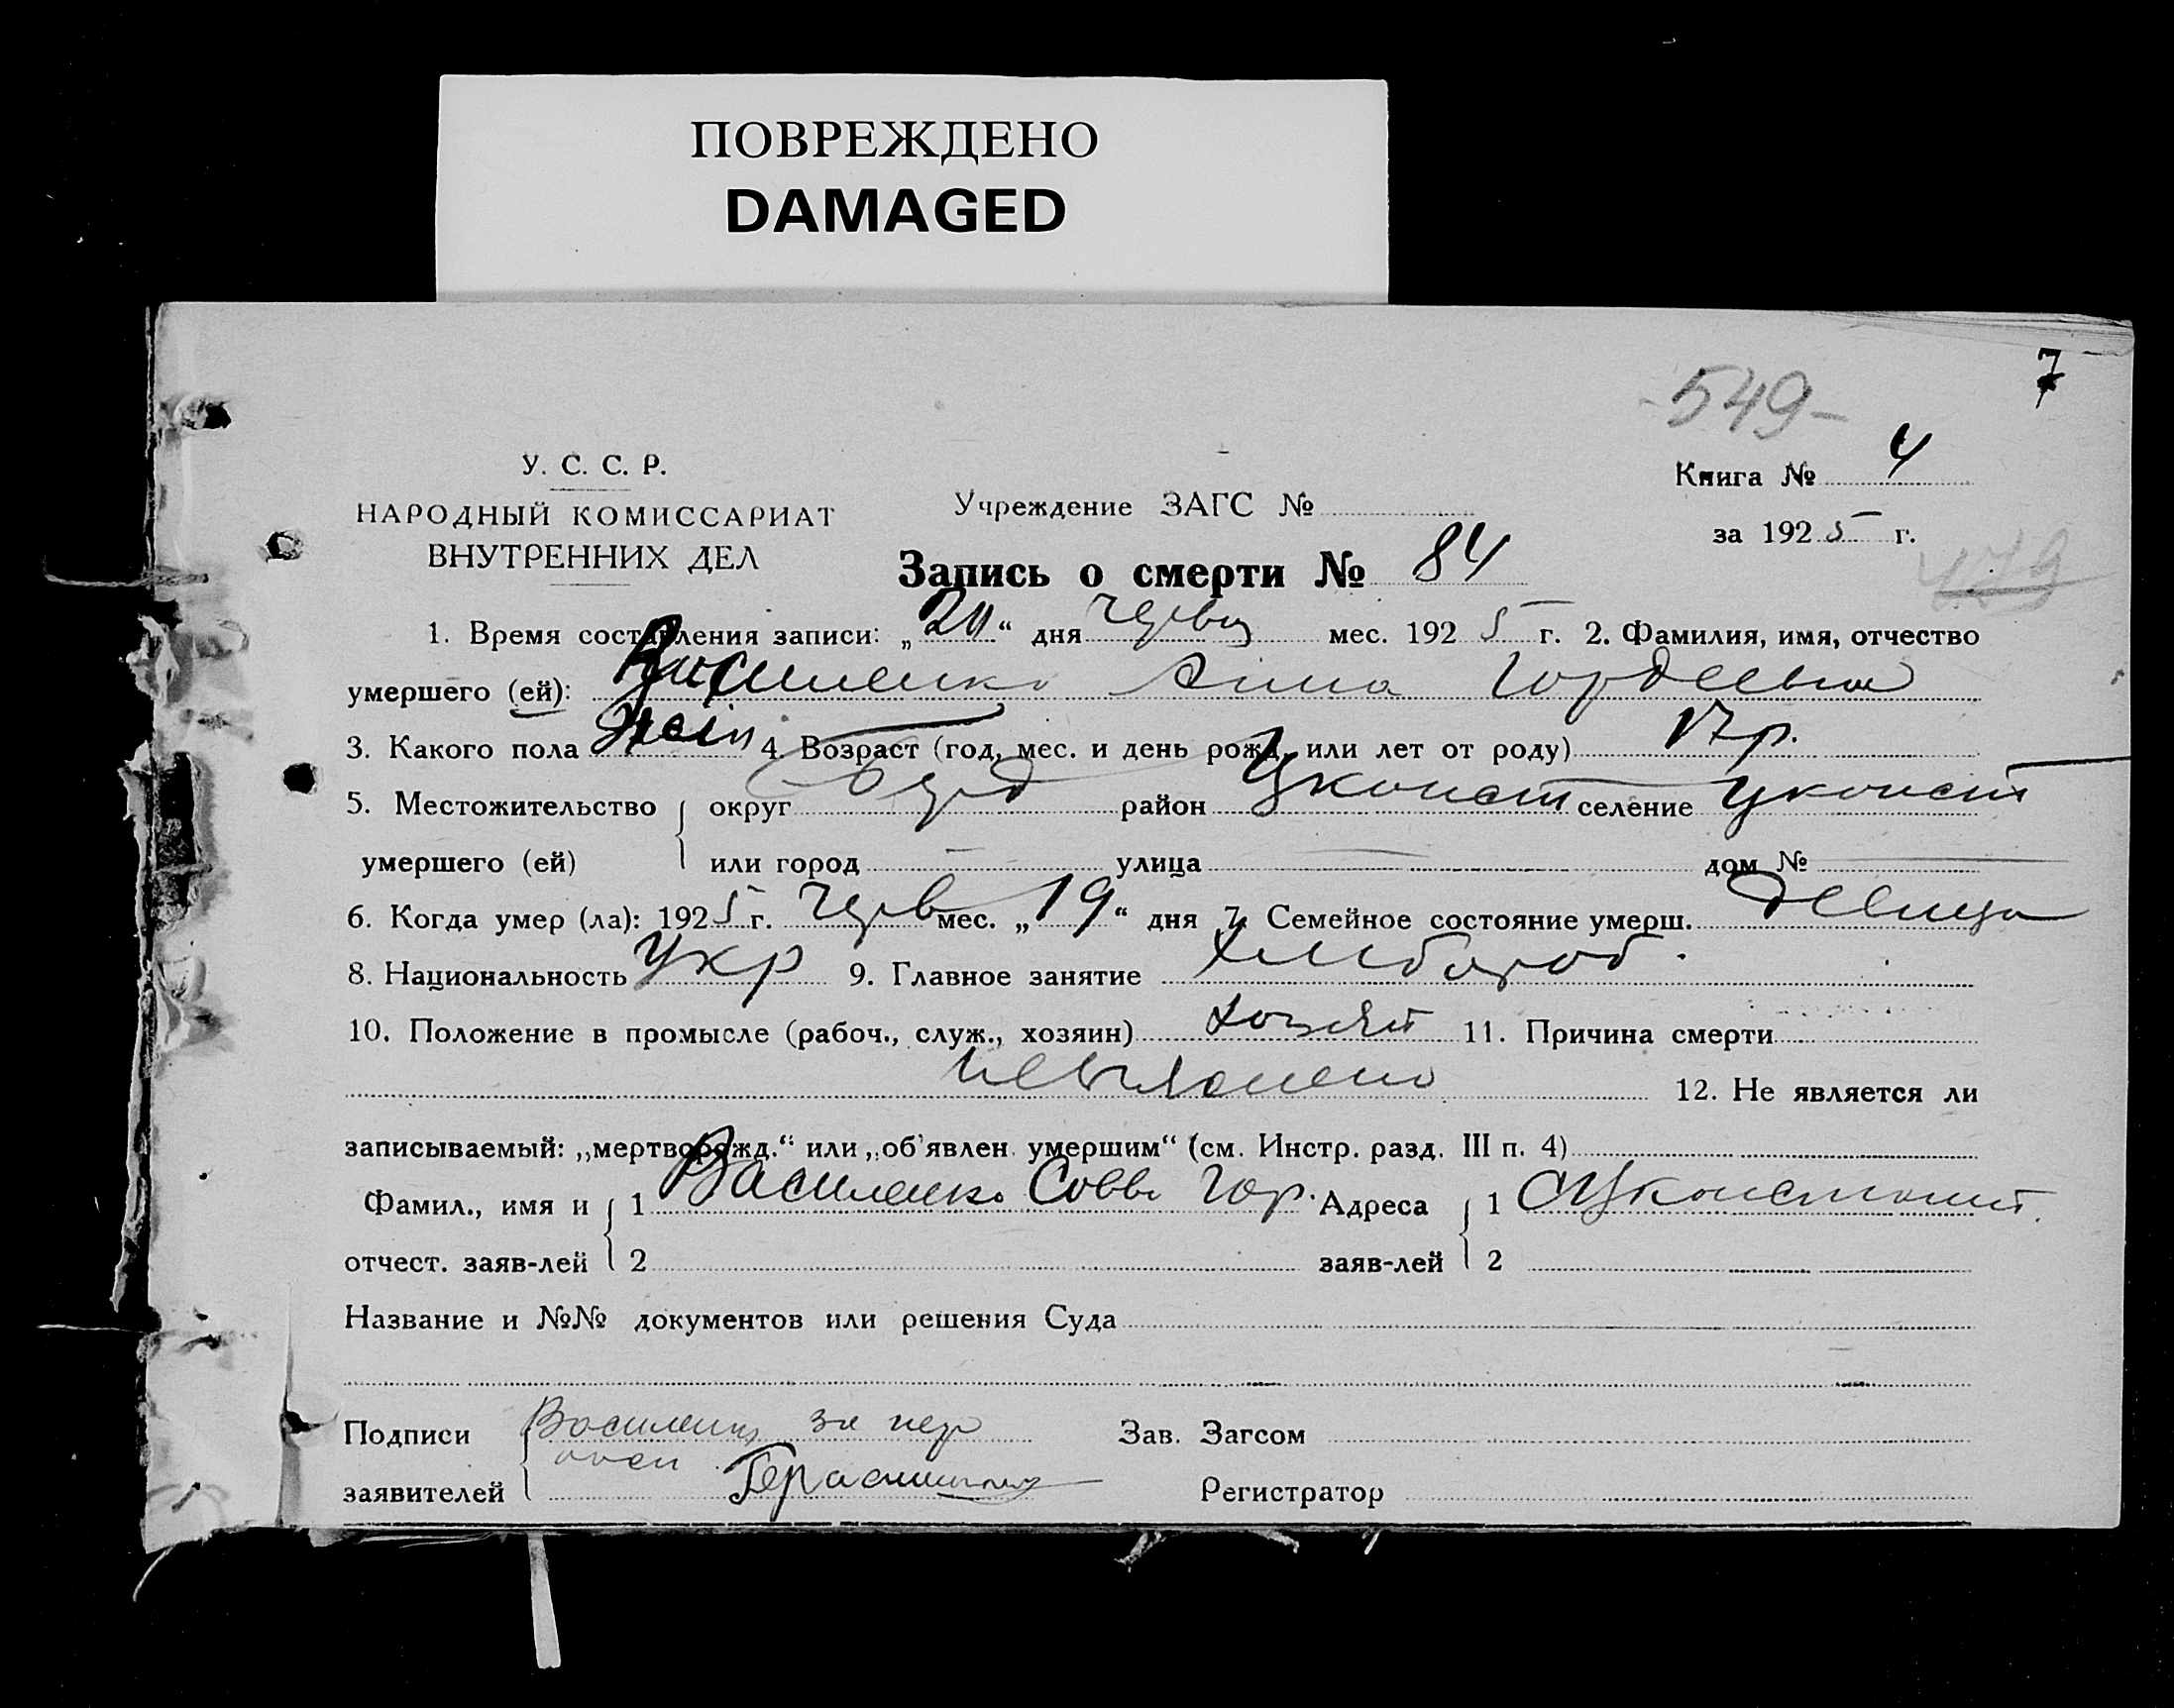 ПОВРЕЖДЕНО
DAMAGED
7
549
У. С. С. Р.
Книга № 4
НАРОДНЫЙ КОМИССАРИАТ
Учреждение ЗАГС №
за 1925 г.
ВНУТРЕННИХ ДЕЛ
479
Запись о смерти № 84
1. Время составления записи: „20“ дня мес. 1925 г. 2. Фамилия, имя, отчество
умершего (ей): Василенко Анна Гордеевна
3. Какого пола жен 4. Возраст (год, мес. и день рожд. или лет от роду) 17 р.
5. Местожительство округ район селение
умершего (ей) или город улица дом №
6. Когда умер (ла): 1925 г. черв мес. „19“ дня 7. Семейное состояние умерш. девица
8. Национальность Укр 9. Главное занятие хлибороб.
10. Положение в промысле (рабоч., служ., хозяин) 11. Причина смерти
12. Не является ли
записываемый: „мертворожд.“ или „об'явлен умершим“ (см. Инстр. разд. III п. 4)
Фамил., имя и 1 Василенко Савва Гор. Адреса 1
отчест. заяв-лей 2 заяв-лей 2
Название и №№ документов или решения Суда
Подписи Василенко за Зав. Загсом
заявителей Регистратор